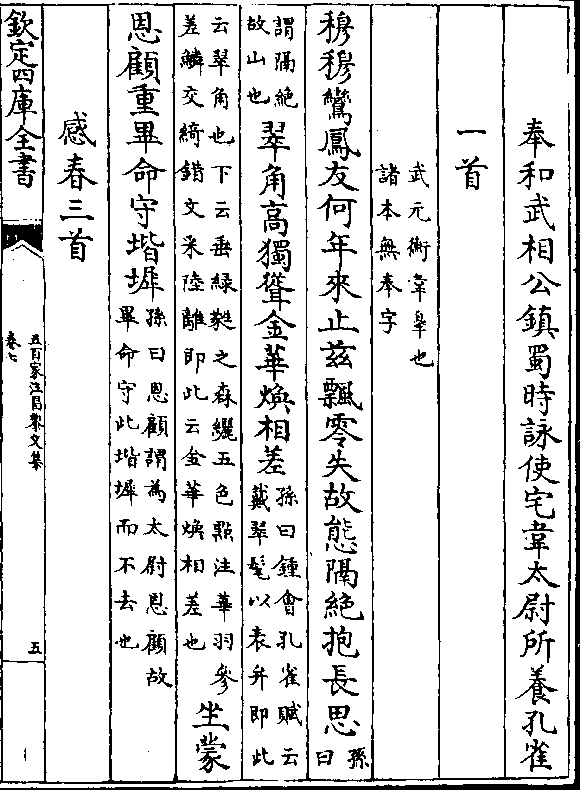 奉和武相公鎮蜀時詠使宅韋太尉所養孔雀
一首
武元衡韋臯也
諸本無奉字
穆穆鸞鳳友何年來止兹飄零失故態隔絶抱長思
孫曰
謂隔絶
故山也
翠角高獨聳金華煥相差
孫曰鍾會孔雀賦云
戴翠旄以表弁即此
云翠角也下云垂緑蕤之森纚五色㸃注華羽參
差鱗交綺錯文采陸離即此云金華煥相差也
坐蒙
恩顧重畢命守堦墀
孫曰恩顧謂為太尉恩顧故
畢命守此堦墀而不去也
感春三首
欽定四庫全書
五百家注昌黎文集
卷七
五